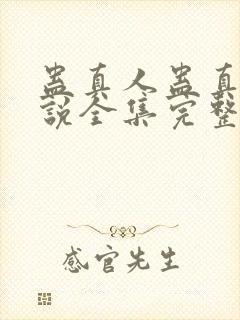 蛊真人蛊真
説全集完整
感官先生